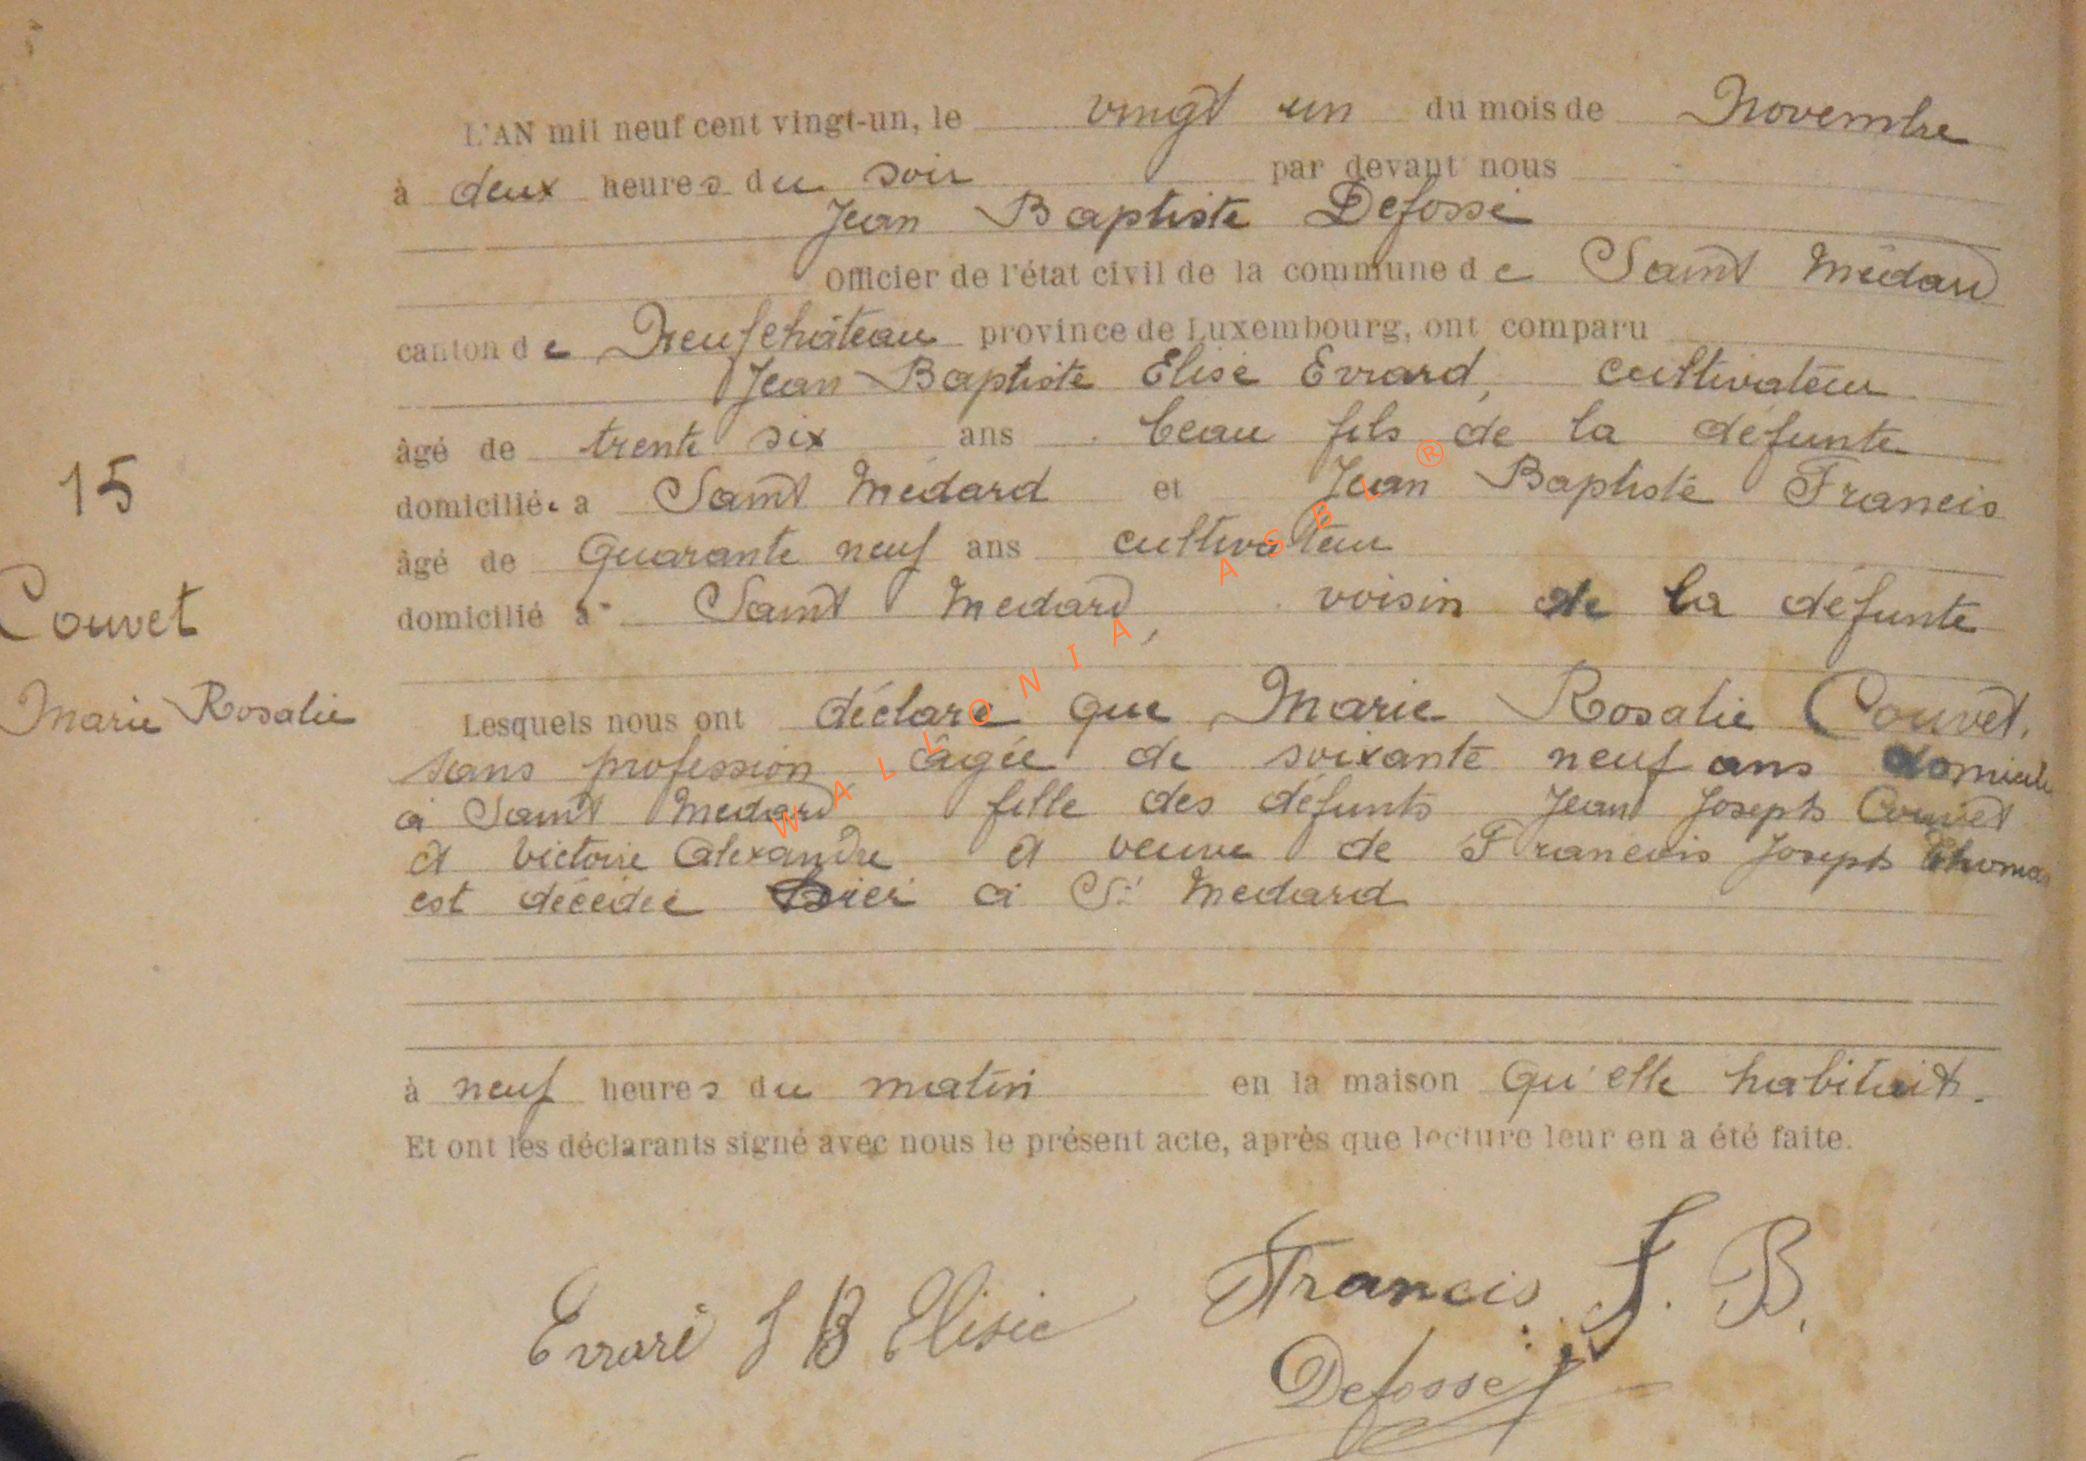 L'AN mil neuf cent vingt-un, le vingt un du mois de Novembre
à deux heures du soir par devant nous
Jean Baptiste Defossé
Officier de l'état civil de la commune de Saint Médard
canton de Neufchâteau province de Luxembourg, ont comparu
Jean Baptiste Elisé Evrard, cultivateur
âgé de trente six ans beau fils de la défunte
domicilié à Saint Médard et Jean Baptiste Francis
âgé de quarante neuf ans cultivateur
domicilié à Saint Médard, voisin de la défunte
15
Couvet
Marie Rosalie
Lesquels nous ont déclaré que Marie Rosalie Couvet,
sans profession âgée de soixante neuf ans
à Saint Médard fille des défunts Jean Joseph Couvet
et Victoire Alexandre et veuve de Francois Joseph Thomas
est décédée hier à St Médard
à neuf heures du matin en la maison qu'elle habitait.
Et ont les déclarants signé avec nous le présent acte, après que lecture leur en a été faite.
Francis J. B.
Evrard J B Elisée
Defossé
WALLONIA ASBL ®